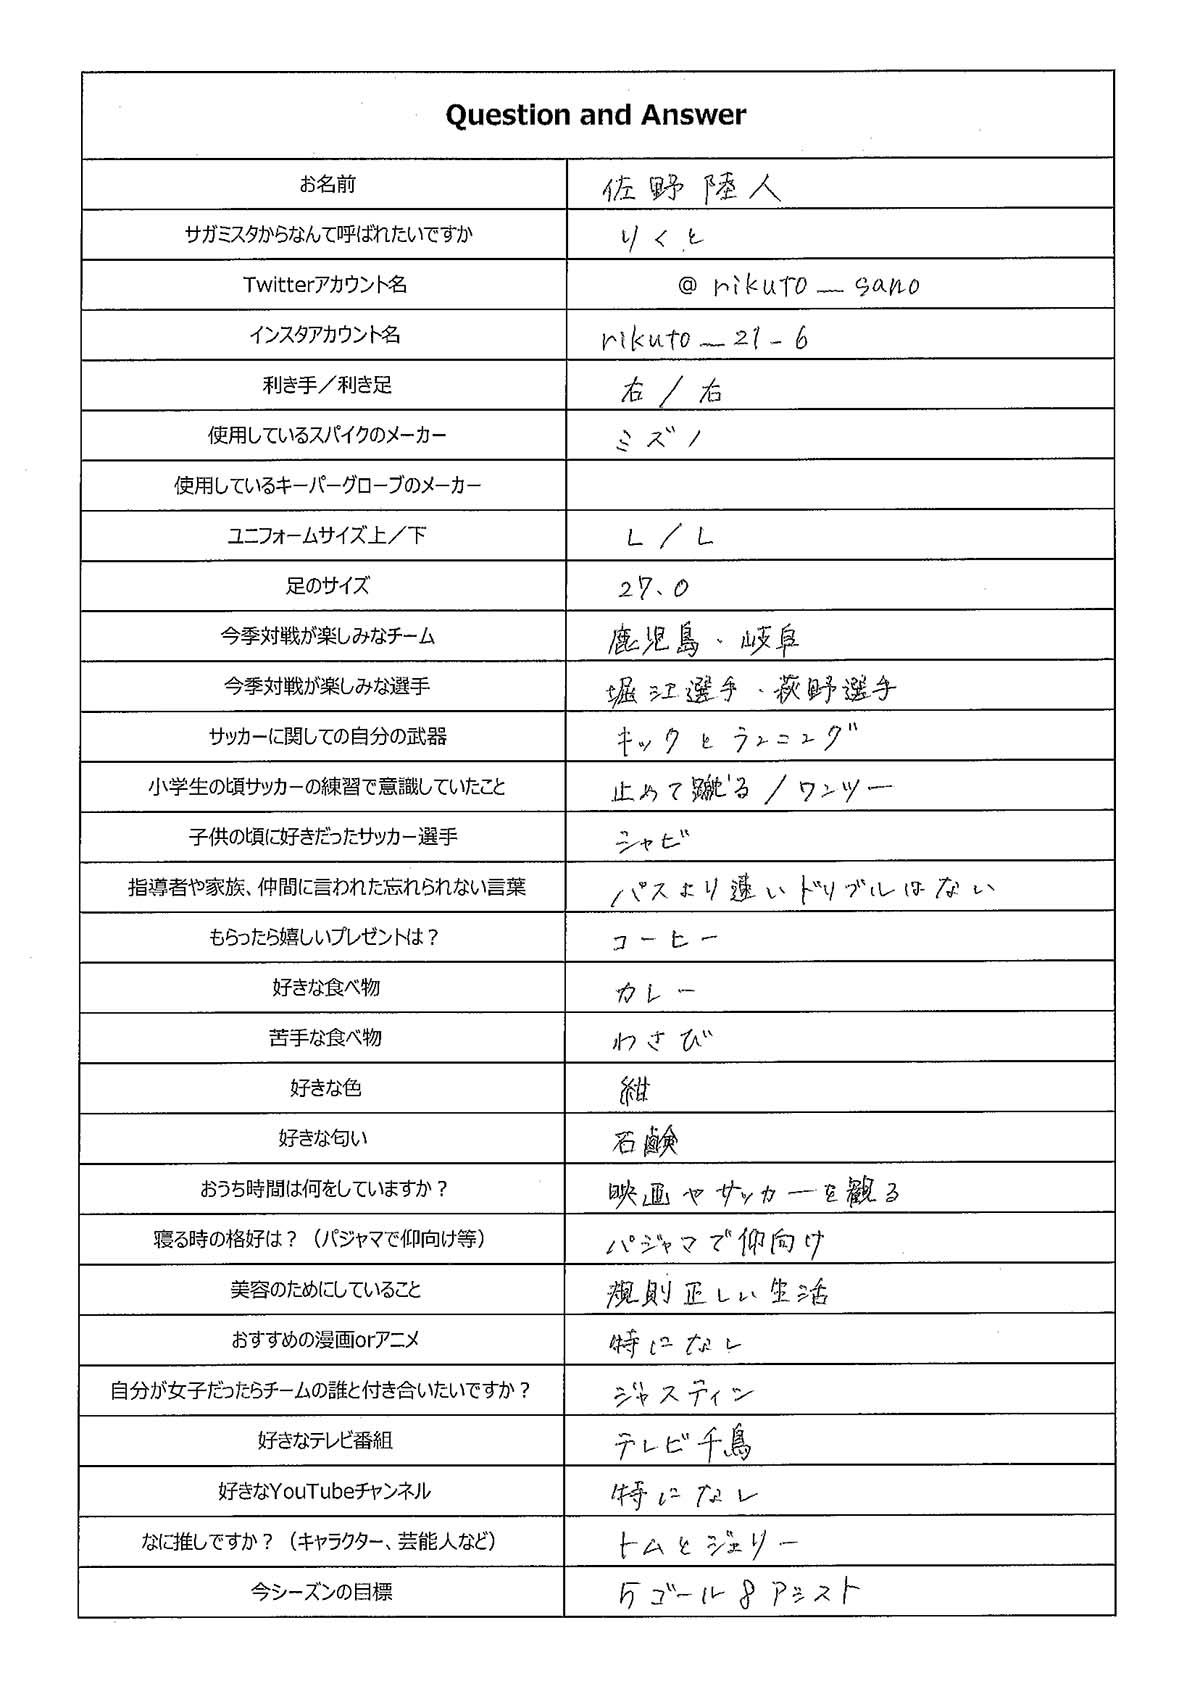 Question and Answer
お名前 佐野陸人
サガミスタからなんて呼ばれたいですか りくと
Twitterアカウント名 @rikuto_sano
インスタアカウント名 rikuto_21-6
利き手／利き足 右／右
使用しているスパイクのメーカー ミズノ
使用しているキーパーグローブのメーカー
ユニフォームサイズ上／下 L／L
足のサイズ 27.0
今季対戦が楽しみなチーム 鹿児島・岐阜
今季対戦が楽しみな選手 堀江選手・萩野選手
サッカーに関しての自分の武器 キックとランニング
小学生の頃サッカーの練習で意識していたこと 止めて蹴る／ワンツー
子供の頃に好きだったサッカー選手 シャビ
指導者や家族、仲間に言われた忘れられない言葉 パスより速いドリブルはない
もらったら嬉しいプレゼントは？ コーヒー
好きな食べ物 カレー
苦手な食べ物 わさび
好きな色 紺
好きな匂い 石鹸
おうち時間は何をしていますか？ 映画やサッカーを観る
寝る時の格好は？（パジャマで仰向け等） パジャマで仰向け
美容のためにしていること 規則正しい生活
おすすめの漫画orアニメ 特になし
自分が女子だったらチームの誰と付き合いたいですか？ ジャスティン
好きなテレビ番組 テレビ千鳥
好きなYouTubeチャンネル 特になし
なに推しですか？（キャラクター、芸能人など） トムとジェリー
今シーズンの目標 5ゴール8アシスト